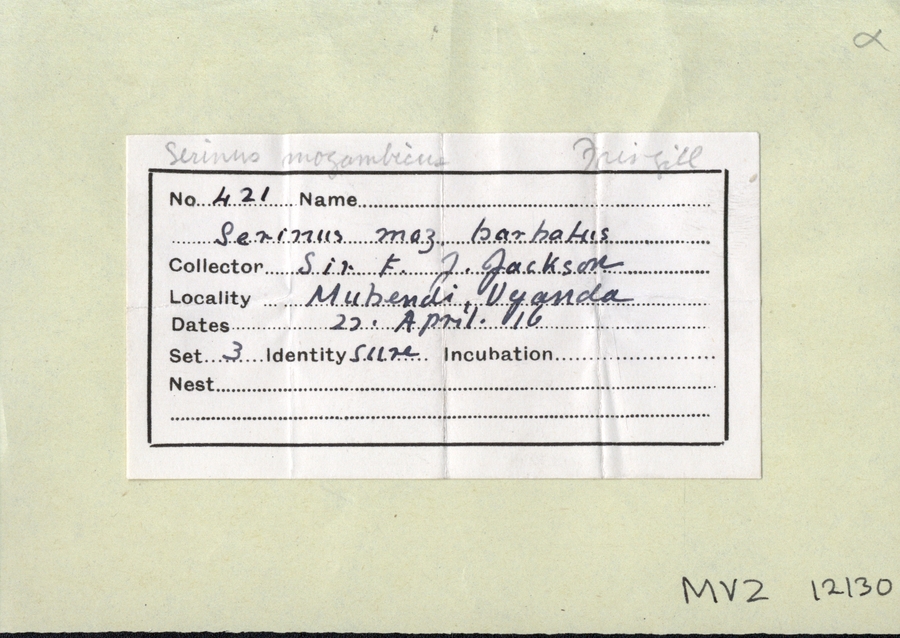 α
Serinus mozambicus Fringill
No. 421 Name
Serinus moz. barbatus
Collector Sir F. J. Jackson
Locality Mubendi, Uganda
Dates 22. April. 16
Set 3 Identity sure Incubation
Nest
MVZ 12130